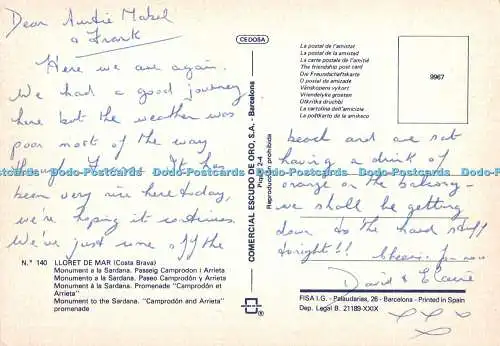 Dear Auntie Mabel
& Frank
Here we are again.
We had a good journey
here but the weather was
poor most of the way
through France. It has
been very nice here today,
we're hoping it continues.
We've just come off the
N.° 140 LLORET DE MAR (Costa Brava)
Monument à la Sardana. Passeig Camprodon i Arrieta
Monumento a la Sardana. Paseo Camprodón y Arrieta
Monument à la Sardana. Promenade "Camprodon et
Arrieta"
Monument to the Sardana. "Camprodon and Arrieta"
promenade
CEDOSA
COMERCIAL ESCUDO DE ORO, S.A. - Barcelona
Reproducción prohibida
La postal de l'amistat
La postal de la amistad
La carte postale de l'amitié
The friendship post card
Die Freundschaftskarte
O postal de amizade
Vänskapens vykort
Vriendelyke groeten
Otkritka druchbi
La cartolina dell'amicizia
La poŝtkarto de la amikeco
9967
beach and are sat
having a drink of
orange on the balcony -
we shall be getting
down to the hard stuff
tonight!! Cheerio for now
David & Claire
XXX
FISA I.G. - Palaudarias, 26 - Barcelona - Printed in Spain
Dep. Legal B. 21189-XXIX
Postcard Finder Dodo-Postcards Dodo-Postcards Dodo-Postcards